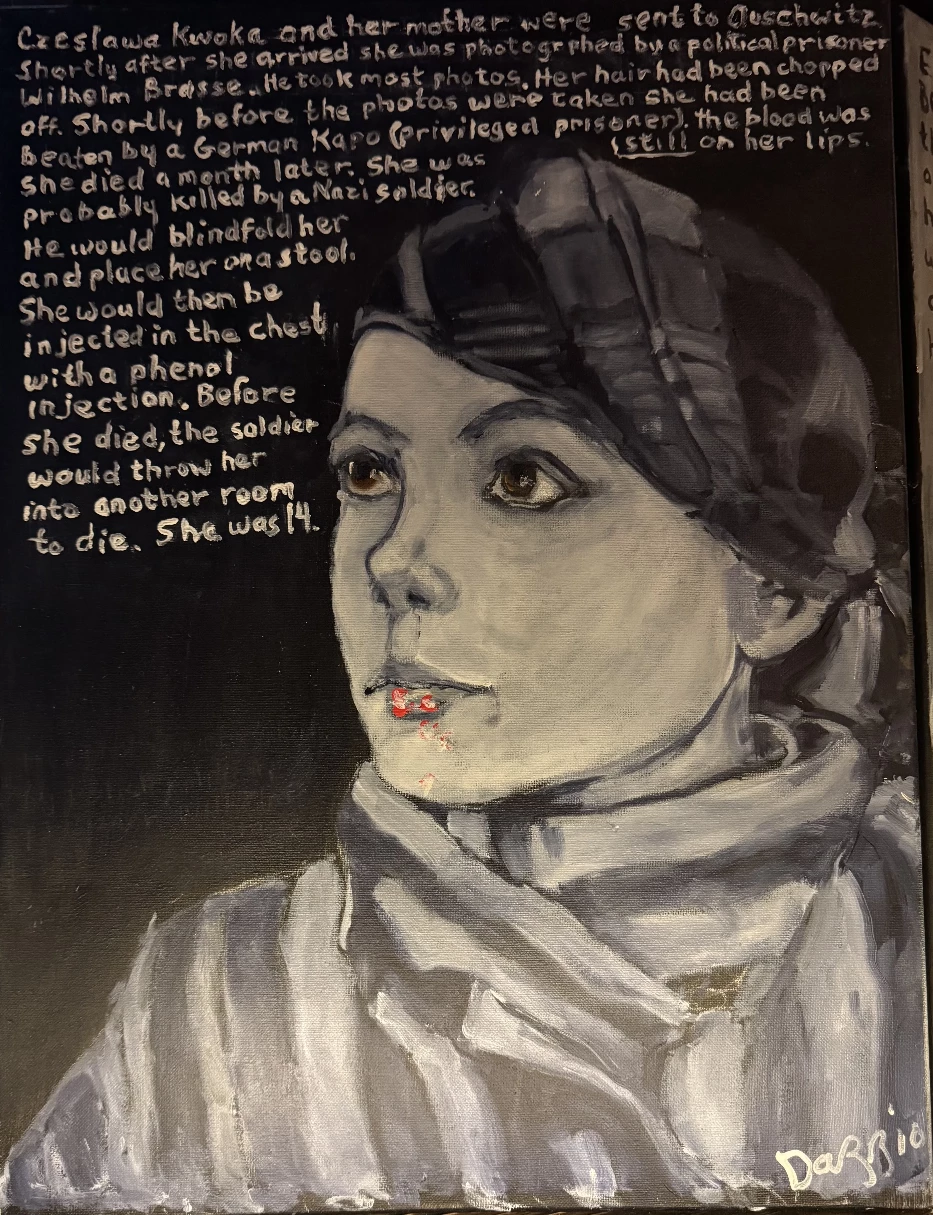 Czeslawa Kwoka and her mother were sent to Auschwitz.
Shortly after she arrived she was photogrphed by a political prisoner
Wilhelm Brasse. He took most photos. Her hair had been chopped
off. Shortly before the photos were taken she had been
Beaten by a German Kapo (privileged prisoner). the blood was
still on her lips.
She died a month later. She was
probably killed by a Nazi soldier.
He would blindfold her
and place her on a stool.
She would then be
injected in the chest
with a phenol
injection. Before
she died, the soldier
would throw her
into another room
to die. She was 14.